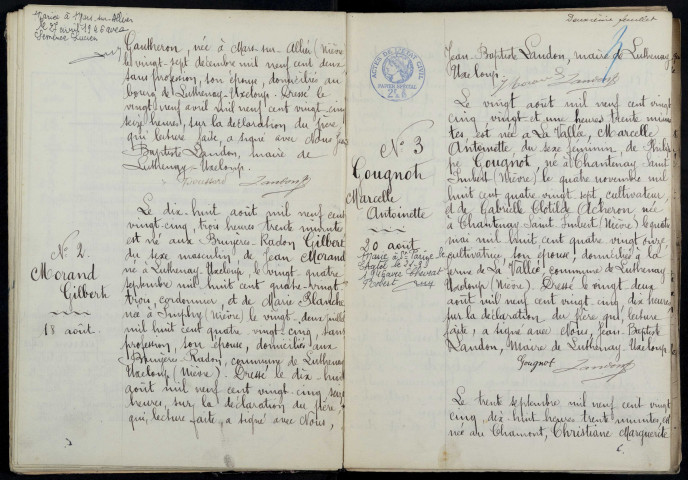 Mariée à Mars-sur-Allier
le 27 avril 1946 avec
Lucien
Gautheron, née à Mars-sur-Allier (Nièvre)
le vingt-sept décembre mil neuf cent deux
sans profession, son épouse, domiciliés au
bourg de Luthenay-Uxeloup. Dressé le
vingt neuf avril mil neuf cent vingt-cinq
seize heures, sur la déclaration du père
qui, lecture faite, a signé avec Nous Jean
Baptiste Landon, maire de
Luthenay-Uxeloup.
Landon
N° 2
Morand
Gilbert
18 août
Le dix-huit août mil neuf cent
vingt-cinq, trois heures trente minutes
est né aux Bruyère-Radon Gilbert
du sexe masculin, de Jean Morand
né à Luthenay-Uxeloup, le vingt-quatre
septembre mil huit cent quatre-vingt
trois, cordonnier, et de Marie Blanche
née à Imphy (Nièvre) le vingt-deux juillet
mil huit cent quatre-vingt-cinq, sans
profession, son épouse, domiciliés aux
Bruyère-Radon, commune de Luthenay
Uxeloup (Nièvre). Dressé le dix-huit
août mil neuf cent vingt-cinq, seize
heures, sur la déclaration du père
qui, lecture faite, a signé avec Nous,
Deuxième feuillet
Jean-Baptiste Landon, maire de Luthenay
Uxeloup.
Morand Landon
ACTES DE L'ÉTAT CIVIL
PAPIER SPÉCIAL
N° 3
Gougnot
Marcelle
Antoinette
20 août
Le vingt août mil neuf cent vingt
cinq, vingt et une heures trente minu
tes est née à La Vallée, Marcelle
Antoinette du sexe féminin, de Philip
pe Gougnot, né à Chantenay Saint
Imbert (Nièvre) le quatre novembre mil
huit cent quatre vingt sept, cultivateur,
et de Gabrielle Clotilde née
à Chantenay Saint Imbert (Nièvre) le quatre
mai mil huit cent quatre vingt onze,
cultivatrice, son épouse, domiciliés à la
ferme de La Vallée, commune de Luthenay
Uxeloup (Nièvre). Dressé le vingt deux
août mil neuf cent vingt cinq, dix heures
sur la déclaration du père qui, lecture
faite, a signé avec Nous, Jean-Baptiste
Landon, Maire de Luthenay-Uxeloup.
Gougnot Landon
Le trente septembre mil neuf cent vingt
cinq, dix-huit heures trente minutes, est
née au Chamont, Christiane Marguerite